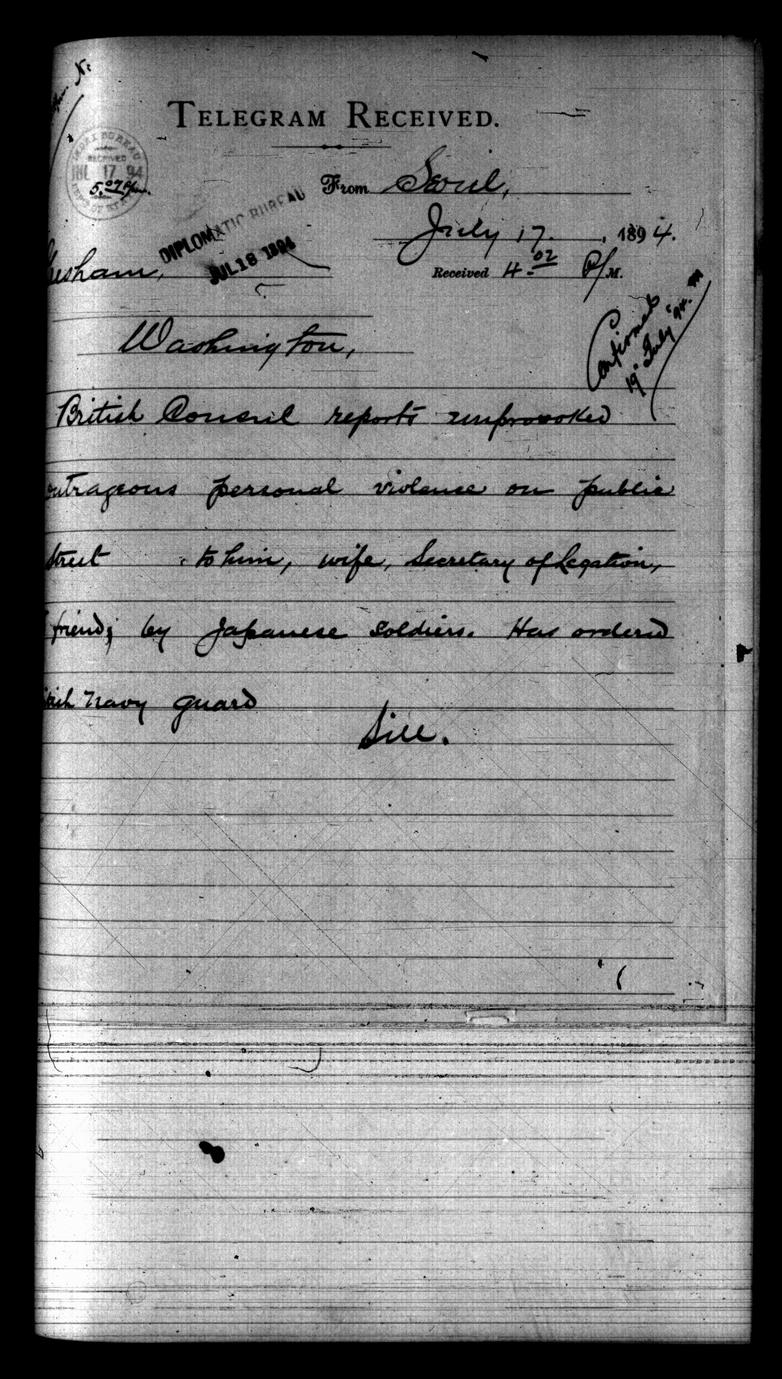 TELEGRAM RECEIVED.
INDEX BUREAU
RECEIVED
JUL 17 94
5.07 P.m.
DEPT OF STATE
From Seoul,
DIPLOMATIC BUREAU
JUL 18 1894
July 17. , 1894.
Gresham,
Received 4.02 P/M.
Washington,
Confirmed
19 July '94.
British Consul reports unprovoked
outrageous personal violence on public
street to him, wife, Secretary of Legation,
friend; by Japanese soldiers. Has ordered
British Navy guard
Sill.